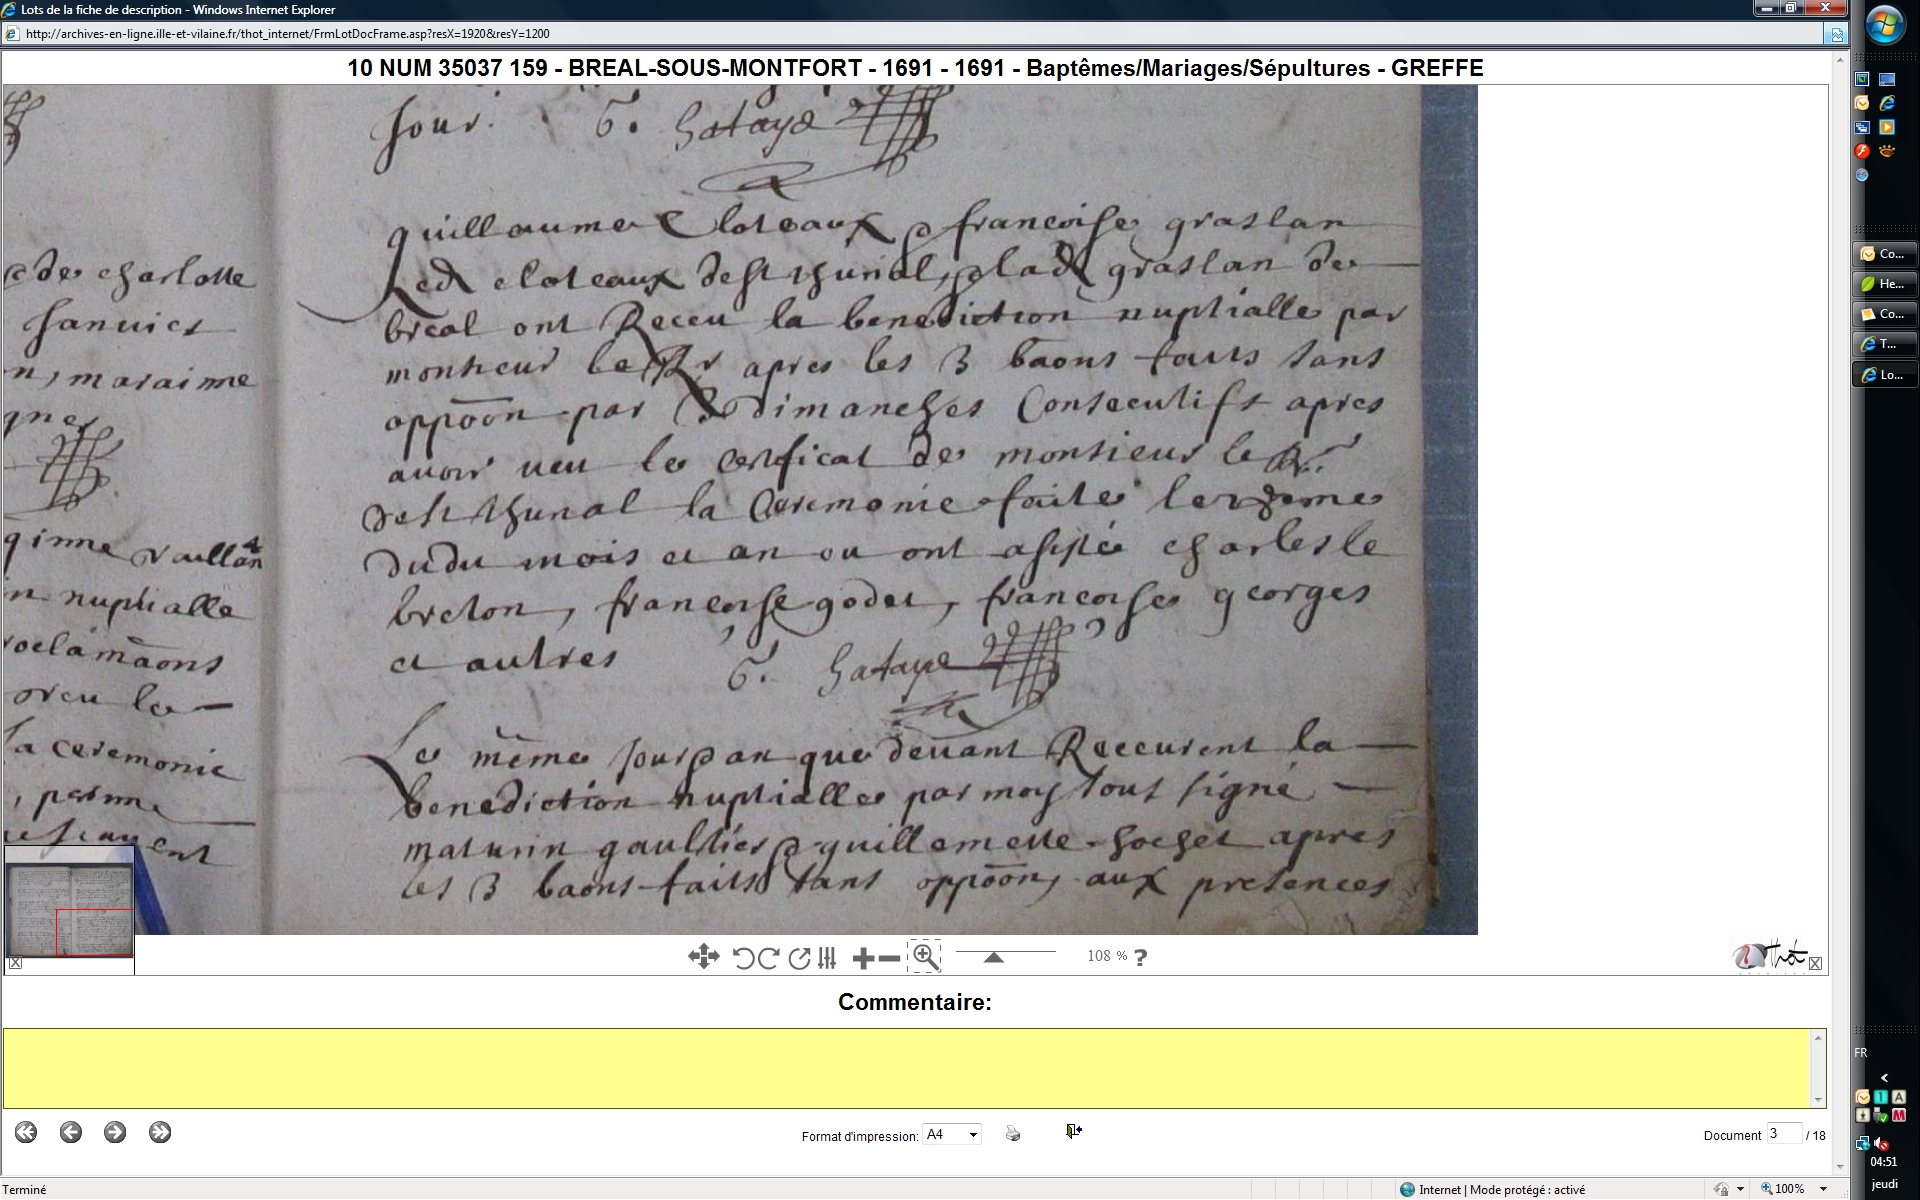 Lots de la fiche de description - Windows Internet Explorer
http://archives-en-ligne.ille-et-vilaine.fr/thot_internet/FrmLotDocFrame.asp?resX=1920&resY=1200
10 NUM 35037 159 - BREAL-SOUS-MONTFORT - 1691 - 1691 - Baptêmes/Mariages/Sépultures - GREFFE
Jour. G. Hataye
guillaume Cloteaux & francoise graslan
Led cloteaux de st thurial, & lade graslan de
breal ont Receu la benediction nuptialle par
monsieur le Rr apres les 3 baons faits sans
oppoōn par 3 dimanches Consecutifs apres
avoir veu le certificat de monsieur le Rr
de st thurial la Ceremonie faite le
dudit mois et an ou ont assisté charles le
breton, francoise godet, francoise georges
et autres G. Hataye
Le même jour & an que devant Receurent la
benediction nuptialle par moy sous signé
maturin gaultier & guillemette hochet apres
les 3 baons faits sans oppoōn, aux presences
de charlotte
Janvier
n, maraine
vaullan
n nuptialle
roclamāons
oreu la
la ceremonie
108 %
?
Thot
Commentaire:
Format d'impression: A4
Document 3 / 18
Terminé
Internet | Mode protégé : activé
100%
Co...
He...
Co...
T...
Lo...
FR
04:51
jeudi